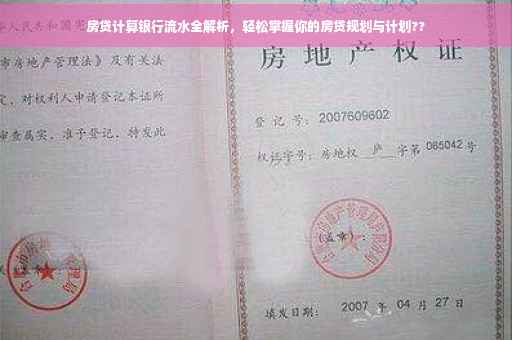 房贷计算银行流水全解析，轻松掌握你的房贷规划与计划??
人民共和国宪
市房地产管理法》及有关
定，对权利人申请登记本证所
审查属实，准予登记，特发此
房地产权证
登记号：2007609602
权证字号：房地权 庐 字第 085042 号
(盖章)：
填发日期：2007 年 04 月 27 日